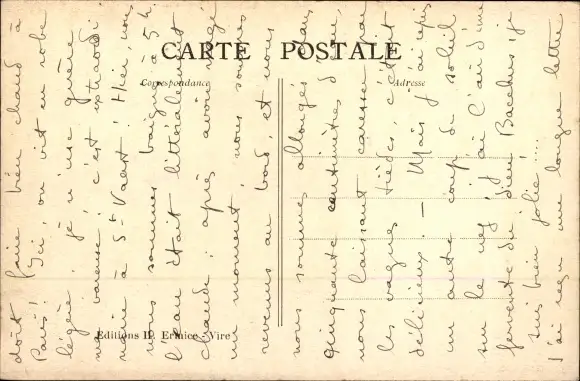 CARTE POSTALE
Correspondance
Adresse
doit faire bien chaud à
Paris! Ici, on vit en robe
légère. Je n'use guère
ma vareuse, c'est extraordi
naire à St Vaast! Hier, nous
nous sommes baignés à 5 h
l'eau était littéralement
chaude; après avoir nagé
un moment, nous sommes
revenus au bord, et nous
nous sommes allongés dans
quinquante centimètres d'eau,
nous laissant caresser par
les vagues tièdes, c'était
délicieux. — Mais j'ai repris
un autre coup de soleil
sur le nez, j'ai l'air d'une
fervente du dieu Bacchus; je
suis bien jolie....
J'ai reçu une longue lettre
Editions H. Ermice, Vire